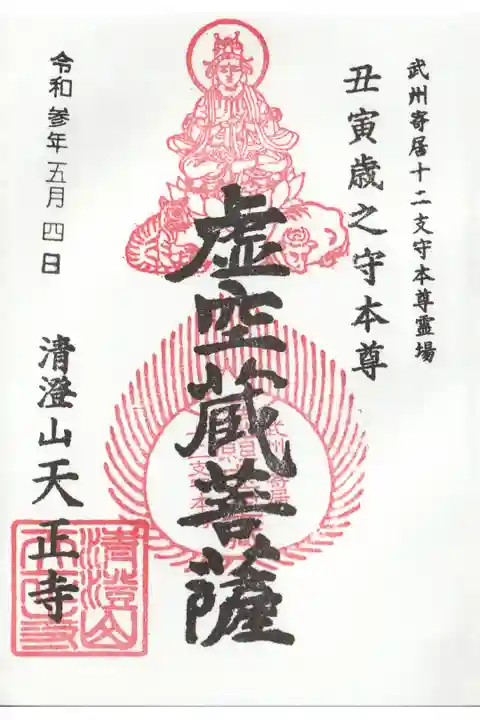 武州寄居十二支守本尊霊場
丑寅歳之守本尊
虚空蔵菩薩
令和参年五月四日
清澄山天正寺
清澄山
天正寺